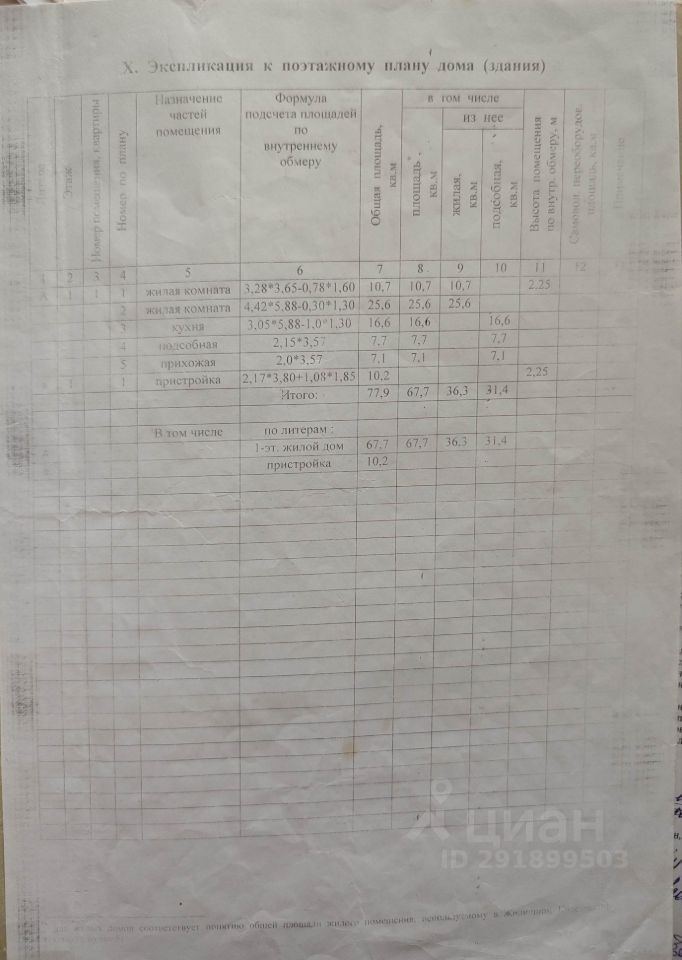 X. Экспликация к поэтажному плану дома (здания)
Этаж
Номер помещения, квартиры
Номер по плану
Назначение частей помещения
Формула подсчета площадей по внутреннему обмеру
Общая площадь, кв.м
в том числе
площадь кв.м
из нее
жилая, кв.м
подсобная, кв.м
Высота помещения по внутр. обмеру, м
Самовол. переоборудов. площадь, кв.м
Примечание
1 2 3 4 5 6 7 8 9 10 11 12
А 1 1 1 жилая комната 3,28*3,65-0,78*1,60 10,7 10,7 10,7 2,25
2 жилая комната 4,42*5,88-0,30*1,30 25,6 25,6 25,6
3 кухня 3,05*5,88-1,0*1,30 16,6 16,6 16,6
4 подсобная 2,15*3,57 7,7 7,7 7,7
5 прихожая 2,0*3,57 7,1 7,1 7,1
1 1 пристройка 2,17*3,80+1,08*1,85 10,2 2,25
Итого: 77,9 67,7 36,3 31,4
В том числе по литерам :
1-эт. жилой дом 67,7 67,7 36,3 31,4
пристройка 10,2
циан
ID 291899503
для жилых домов соответствует понятию общей площади жилого помещения, используемому в жилищном